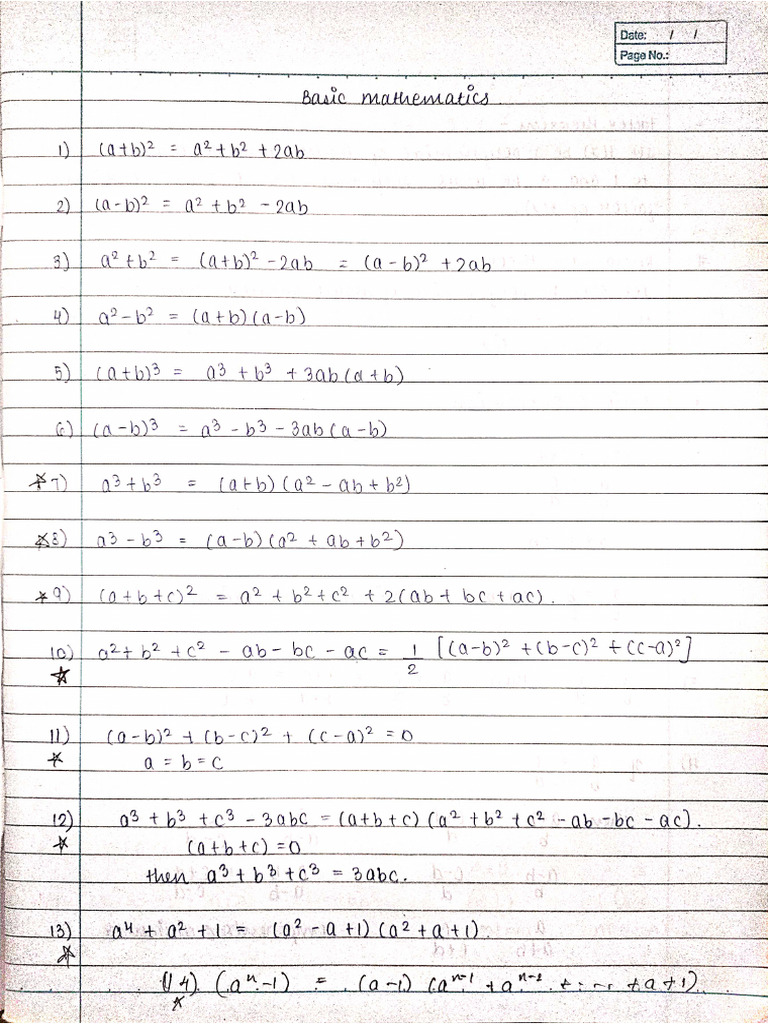 Date: / /
Page No.:
Basic mathematics.
1) (a+b)² = a² + b² + 2ab
2) (a-b)² = a² + b² - 2ab
3) a² + b² = (a+b)² - 2ab = (a-b)² + 2ab
4) a² - b² = (a+b)(a-b)
5) (a+b)³ = a³ + b³ + 3ab(a+b)
6) (a-b)³ = a³ - b³ - 3ab(a-b)
☆7) a³ + b³ = (a+b)(a² - ab + b²)
☆8) a³ - b³ = (a-b)(a² + ab + b²)
☆9) (a+b+c)² = a² + b² + c² + 2(ab + bc + ac).
10) a² + b² + c² - ab - bc - ac = 1/2 [(a-b)² + (b-c)² + (c-a)²]
☆
11) (a-b)² + (b-c)² + (c-a)² = 0
☆ a = b = c
12) a³ + b³ + c³ - 3abc = (a+b+c)(a² + b² + c² - ab - bc - ac).
☆ (a+b+c) = 0
then a³ + b³ + c³ = 3abc.
13) a⁴ + a² + 1 = (a² - a + 1)(a² + a + 1).
☆
(14) (aⁿ - 1) = (a-1)(aⁿ⁻¹ + aⁿ⁻² + ... + a + 1).
☆